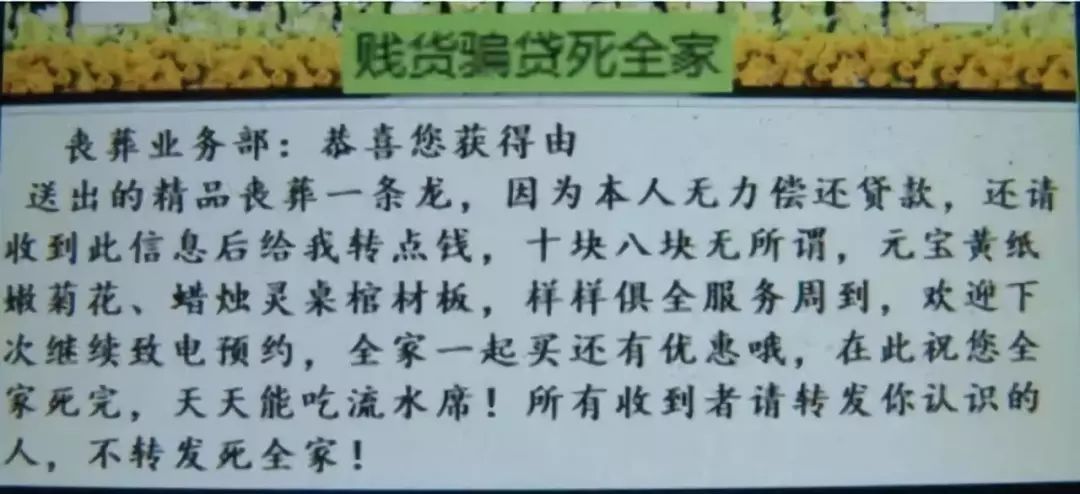 贱货骗贷死全家
丧葬业务部：恭喜您获得由
送出的精品丧葬一条龙，因为本人无力偿还贷款，还请
收到此信息后给我转点钱，十块八块无所谓，元宝黄纸
嫩菊花、蜡烛灵桌棺材板，样样俱全服务周到，欢迎下
次继续致电预约，全家一起买还有优惠哦，在此祝您全
家死完，天天能吃流水席！所有收到者请转发你认识的
人，不转发死全家！